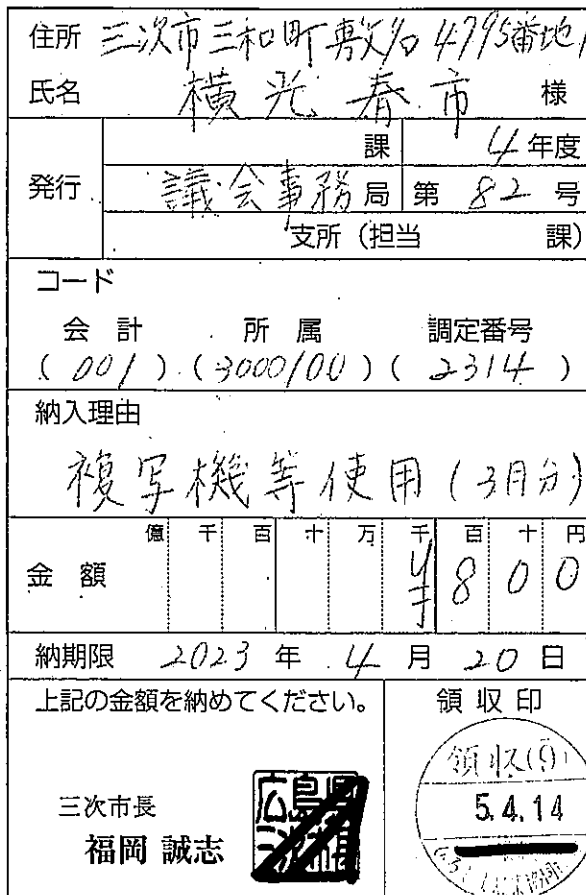 住所 三次市三和町敷名4795番地1
氏名 横光春市 様
発行
課 4年度
議会事務局 第 82 号
支所(担当 課)
コード
会計 所属 調定番号
(001)(3000100)(2314)
納入理由
複写機等使用(3月分)
億 千 百 十 万 千 百 十 円
金額 ¥800
納期限 2023年4月20日
上記の金額を納めてください。
三次市長
福岡 誠志
領収印
領収(9)
5.4.14